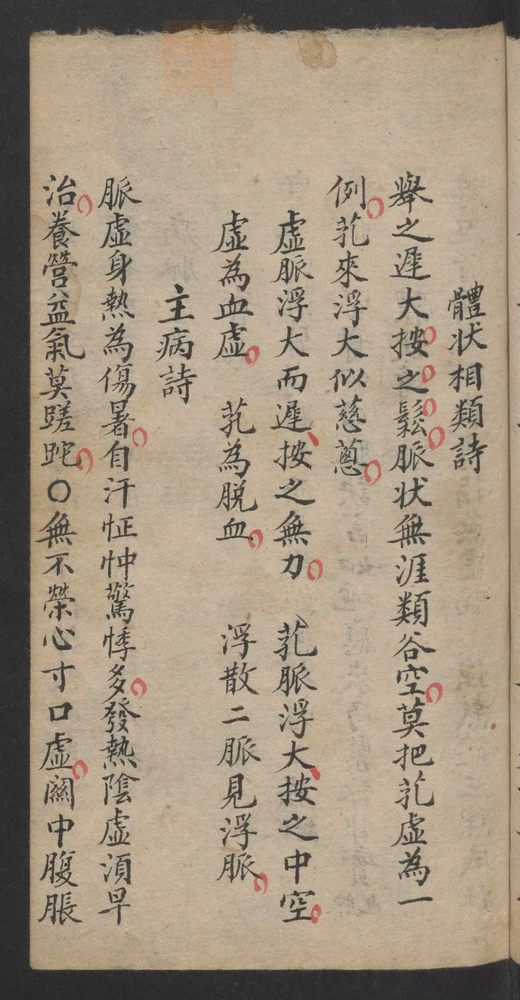 體状相類詩
舉之遲大按之鬆脈状無涯類谷空莫把芤虛為一
例芤來浮大似慈蔥
虛脈浮大而遲按之無力　芤脈浮大按之中空
虛為血虛　芤為脱血　浮散二脈見浮脈
主病詩
脈虛身熱為傷暑自汗怔忡驚悸多發熱陰虛湏早
治養營益氣莫蹉跎〇無不榮心寸口虛關中腹脹